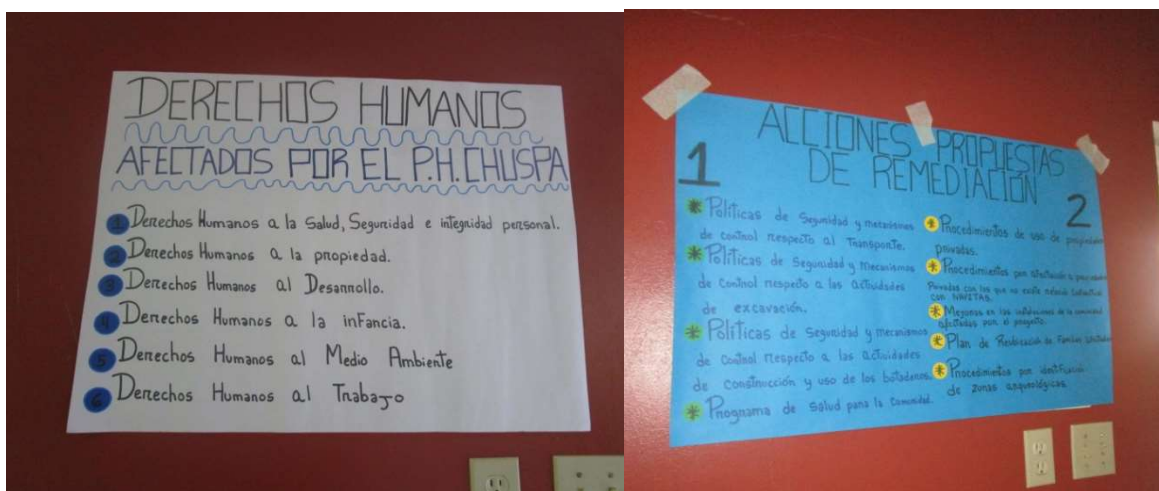 DERECHOS HUMANOS
AFECTADOS POR EL P.H.CHUSPA
1 Derechos Humanos a la Salud, Seguridad e integridad personal.
2 Derechos Humanos a la propiedad.
3 Derechos Humanos al Desarrollo.
4 Derechos Humanos a la infancia.
5 Derechos Humanos al Medio Ambiente
6 Derechos Humanos al Trabajo
ACCIONES PROPUESTAS
DE REMEDIACIÓN
1
* Políticas de Seguridad y mecanismos
de control respecto al Transporte.
* Políticas de Seguridad y Mecanismos
de control respecto a las actividades
de excavación.
* Políticas de Seguridad y mecanismos
de Control respecto a las actividades
de construcción y uso de los botaderos.
* Programa de Salud para la Comunidad.
2
* Procedimientos de uso de propiedades
privadas.
* Procedimientos por afectación a propiedades
Privadas con los que no existe relación Contractual
con
* Mejoras en las instalaciones de la comunidad
afectadas por el proyecto.
* Plan de Reubicación de Familias
* Procedimientos por identificación
de zonas arqueológicas